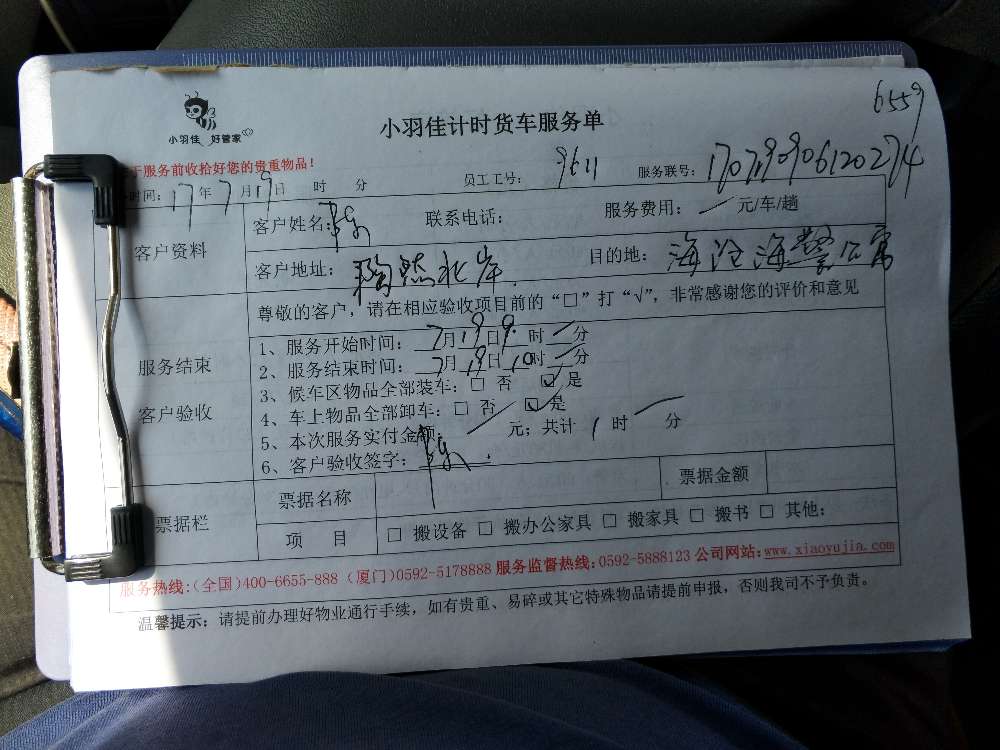 6559
小羽佳 好管家
小羽佳计时货车服务单
于服务前收拾好您的贵重物品！
时间：17年7月19日 时 分 员工工号：9611 服务联号：
客户资料
客户姓名：陈 联系电话： 服务费用：— 元/车/趟
客户地址：北岸 目的地：海沧海警公寓
尊敬的客户，请在相应验收项目前的“□”打“√”，非常感谢您的评价和意见
服务结束
客户验收
1、服务开始时间：7月19日9时—分
2、服务结束时间：7月19日10时—分
3、候车区物品全部装车：□ 否 ☑ 是
4、车上物品全部卸车：□ 否 ☑ 是
5、本次服务实付金额：— 元；共计 1 时 — 分
6、客户验收签字：陈
票据栏
票据名称 票据金额
项 目 □ 搬设备 □ 搬办公家具 □ 搬家具 □ 搬书 □ 其他：
服务热线：（全国）400-6655-888（厦门）0592-5178888 服务监督热线：0592-5888123 公司网站：www.xiaoyujia.com
温馨提示：请提前办理好物业通行手续，如有贵重、易碎或其它特殊物品请提前申报，否则我司不予负责。